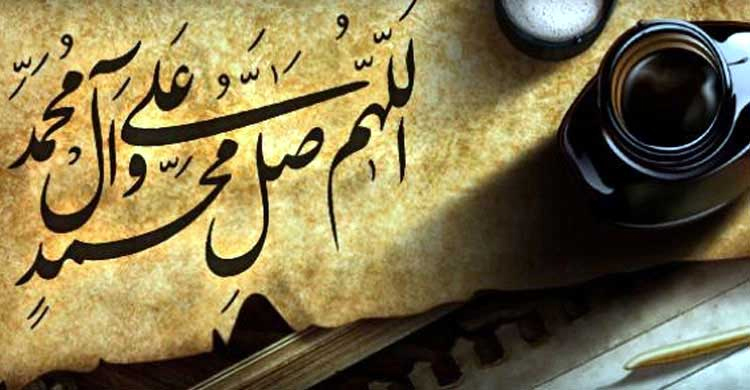 اللّهُمَّ صَلِّ عَلَى مُحَمَّدٍ وَآلِ مُحَمَّد